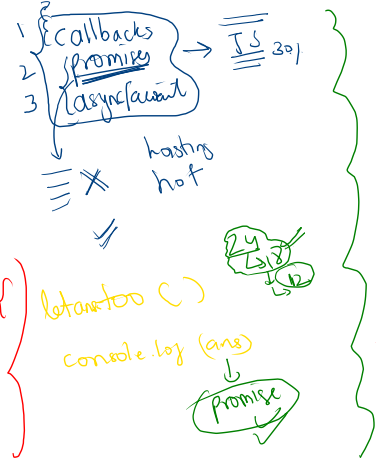 1 { callbacks
2 { promises → JS 301
3 { async/await
hasting
hot
24
↳ 18
↳ 12
let ans = foo ( )
console.log (ans)
promise